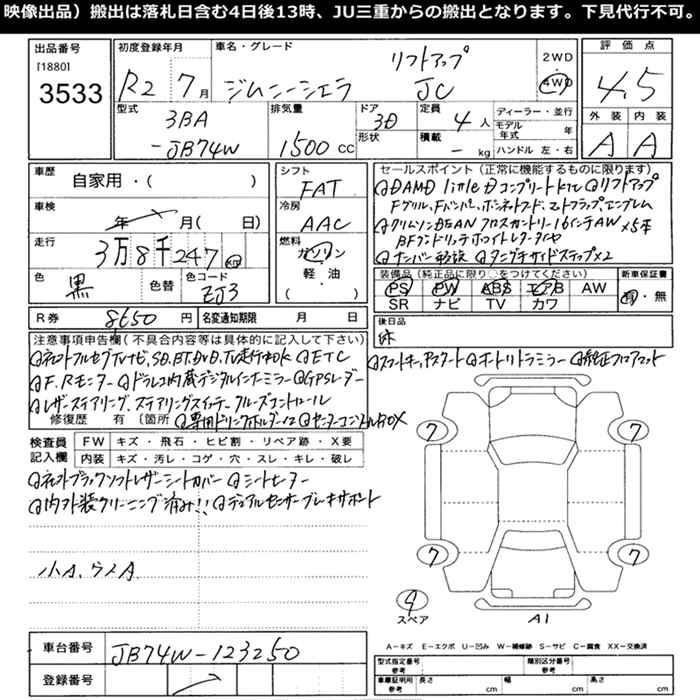 映像出品）搬出は落札日含む4日後13時、JU三重からの搬出となります。下見代行不可。
出品番号
[1880]
3533
初度登録年月
R2 7月
車名・グレード
リフトアップ
ジムニーシエラ JC
2WD
4WD
評価点
4.5
外装 内装
A A
型式
3BA
-JB74W
排気量
1500 cc
ドア
3D
形状
定員
4人
積載
- kg
ディーラー・並行
モデル年式 年
ハンドル 左・右
車歴
自家用・( )
車検
年 月( 日)
走行
3万8千247 km
色
黒
色替
色コード
ZJ3
シフト
FAT
冷房
AAC
燃料
ガソリン
軽・油
( )
セールスポイント（正常に機能するものに限ります）
DAMD little D コンプリートキット リフトアップ
Fグリル、Fバンパー、ボンネットフード、
クリムソン 16インチAW×5本
BFグッドリッチホワイトレタータイヤ
ナンバー移設 タニグチサイドステップ×2
装備品（純正品に限り○をつけてください）
PS PW ABS エアB AW
SR ナビ TV カワ
新車保証書
有・無
R券 8650円
名変通知期限 月 日
後日品
注意事項申告欄（不具合内容等は具体的に記入して下さい）
ETC
F.Rモニター ドラレコ内蔵デジタルインナーミラー GPSレーダー
レザーステアリング、ステアリングスイッチ クルーズコントロール
修復歴 有 〔箇所 専用ドリンクホルダー×2 センターコンソールBOX
スマートキー、プッシュスタート オートリトラミラー 純正フロアマット
検査員記入欄
FW キズ・飛石・ヒビ割・リペア跡・X要
内装 キズ・汚レ・コゲ・穴・スレ・キレ・破レ
ブラックソフトレザーシートカバー シートヒーター
内外装クリーニング済み!! デュアルセンサーブレーキサポート
小A、ウスA
7 7
7 7
9
スペア
A1
A－キズ E－エクボ U－凹み W－補修跡 S－サビ C－腐食 XX－交換済
車台番号 JB74W-123250
登録番号
型式指定番号
参考
類別区分番号
参考
車庫証明用
参考
長さ cm
幅 cm
高さ cm